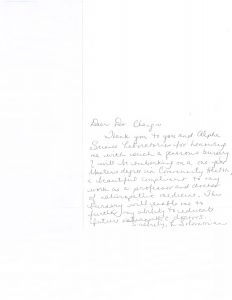 Dear Dr. Chang -
Thank you to you and Alpha
Science Laboratories for honouring
me with such a generous bursary
I will be embarking on a one year
Masters degree in Community Health,
a beautiful compliment to my
work as a professor and doctor
of naturopathic medicine. This
bursary will enable me to
further my ability to educate
future naturopathic doctors.
Sincerely,